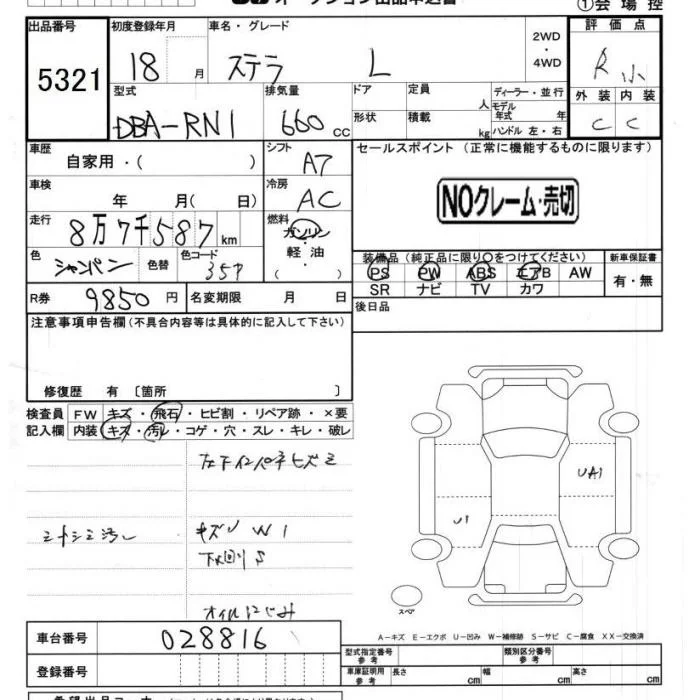 ①会場控
出品番号 初度登録年月 車名・グレード 2WD・4WD 評価点
5321 18 月 ステラ L R 小
型式 排気量 ドア 定員 人 ディーラー・並行 外装 内装
モデル年式 年
DBA-RN1 660 cc 形状 積載 kg ハンドル 左・右 C C
車歴 シフト セールスポイント (正常に機能するものに限ります)
自家用・( ) A7
車検 冷房
年 月( 日) AC NOクレーム・売切
走行 燃料
8万7千587km ガソリン
色 色替 色コード 軽油 装備品 (純正品に限り○をつけてください) 新車保証書
シャンパン ・( ) PS PW ABS エアB AW 有・無
SR ナビ TV カワ
R券 9850円 名変期限 月 日 後日品
注意事項申告欄(不具合内容等は具体的に記入して下さい)
修復歴 有 〔箇所 〕
検査員 FW キズ・飛石・ヒビ割・リペア跡・×要
記入欄 内装 キズ・汚レ・コゲ・穴・スレ・キレ・破レ
UA1
U1
キズ W1
下回りS
オイルにじみ
スペア
A-キズ E-エクボ U-凹み W-補修跡 S-サビ C-腐食 XX-交換済
車台番号 028816
型式指定番号 参考 類別区分番号 参考
登録番号 車庫証明用 参考 長さ cm 幅 cm 高さ cm